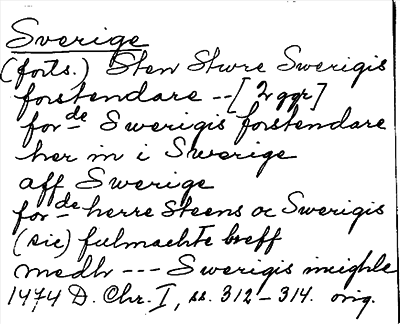 Sverige
(forts.) Sten Sture Swerigis
forstendare -- [2 ggr]
forde Swerigis forstendare
her in i Swerige
aff Swerige
forde herre Steens oc Swerigis
(sic) fulmachte breff
medh --- Swerigis meighle
1474 D. Chr. I, ss. 312-314. orig.